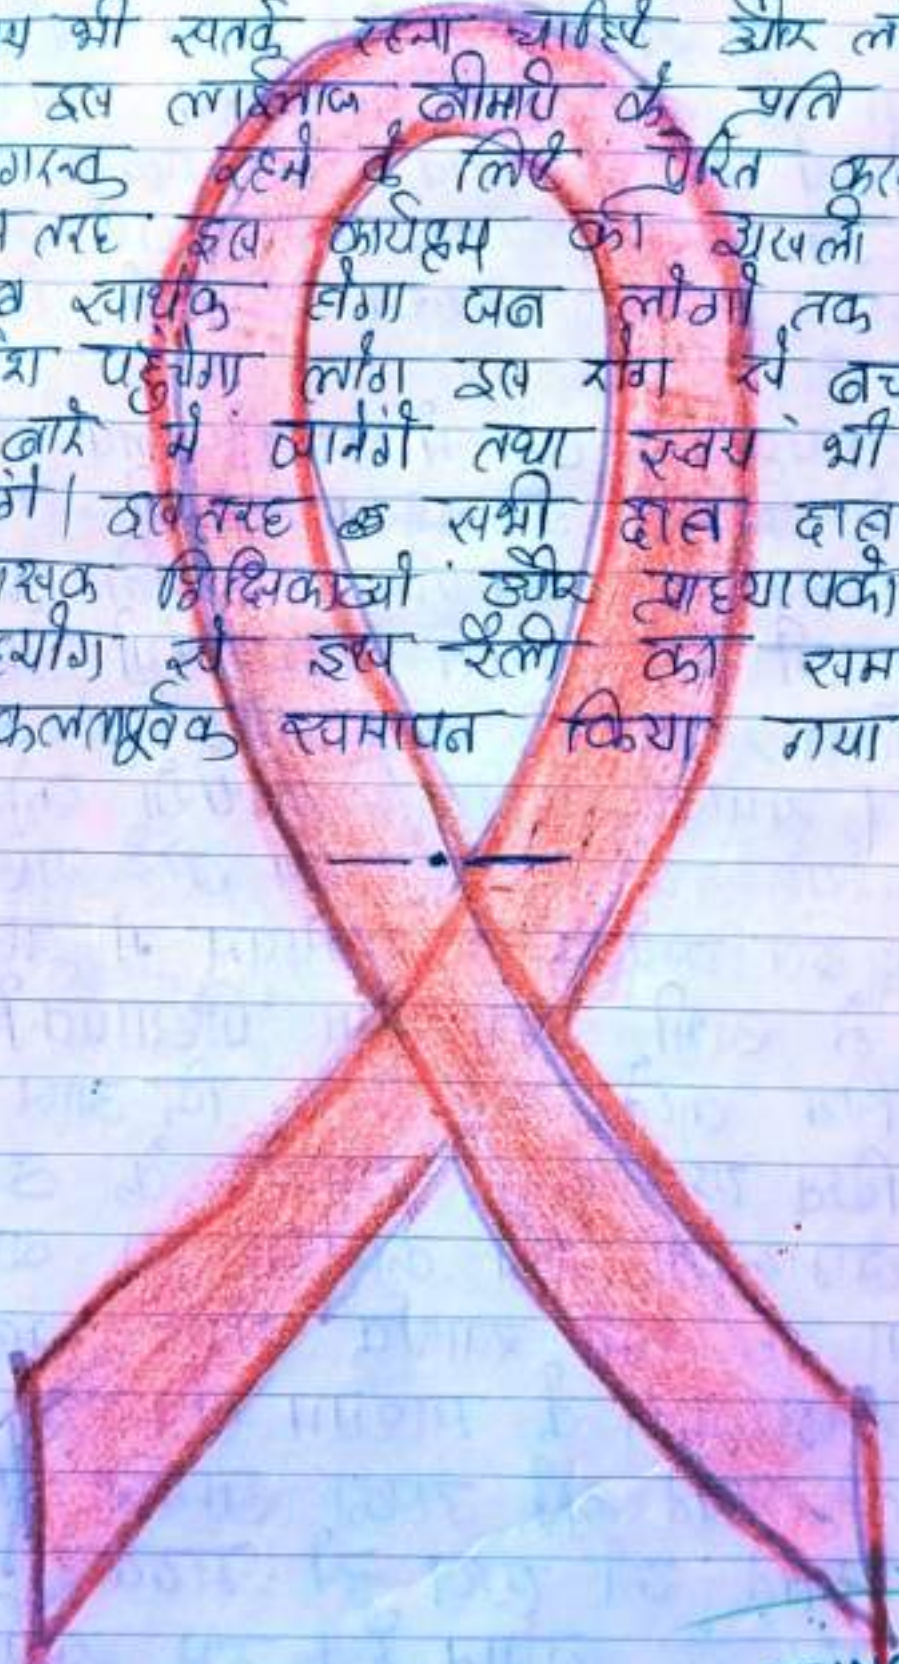 य भी सतर्क रहना चाहिए और ल
इस लाईलाज बीमारि के प्रति
गरूक रहने के लिए प्रेरित कर
तरह इस कार्यक्रम की असली
स्वार्थक होगा जब लोगो तक
श पहुंचेगा लोग इस रोग से बच
बारे मे जानेंगे तथा स्वयं भी
गे। इस तरह सभी छात्र छात्र
क्षक शिक्षिकाओ और प्राध्यापको
हयोग से इस रैली का सम
फलतापूर्वक समापन किया गया